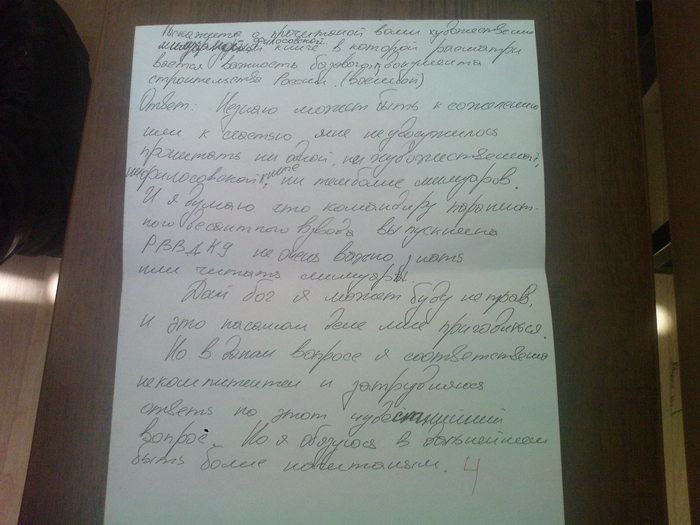 Выскажутся о прочитанной вами художественно
мемуарной философской книге в которой расматри
вается важность базовой документы
строительства России. (военной)
Ответ: Незнаю может быть к сожалению
или к счастью мне не удосужилось
прочитать ни одной, ни художественной,
ни философской книге, ни темболие мимуаров.
И я думаю что командиру парашют-
ного десантного взвода выпускнека
РВВДКУ не очень важно знать
или читать мимуары.
Дай бог я может буду не прав,
и это насамом деле мне пригодиться.
Но в данам вопросе я соответствено
некомпитентен и затрудняюся
ответь на этот чудестнейший
вопрос. Но я обязуюся в дальнейшем
быть более начитаным. 4